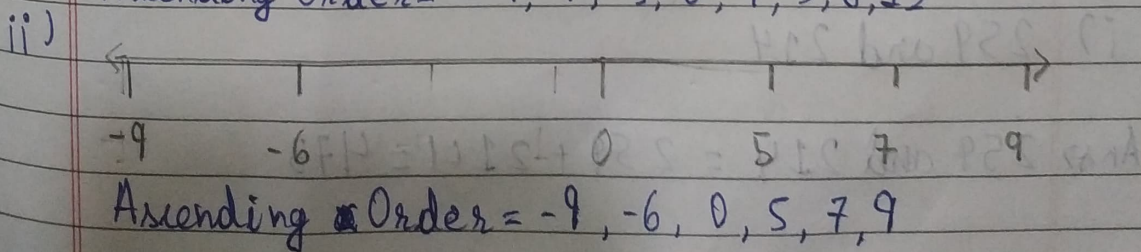 ii)
-9 -6 0 5 7 9
Ascending Order = -9, -6, 0, 5, 7, 9